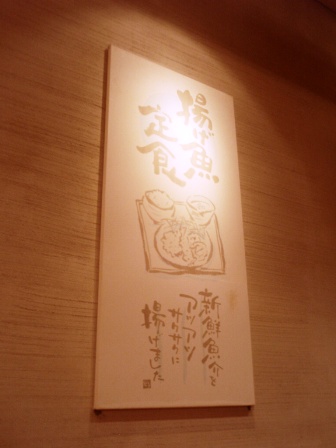 揚げ魚
定食
新鮮魚介を
アツアツ
サクサクに
揚げました